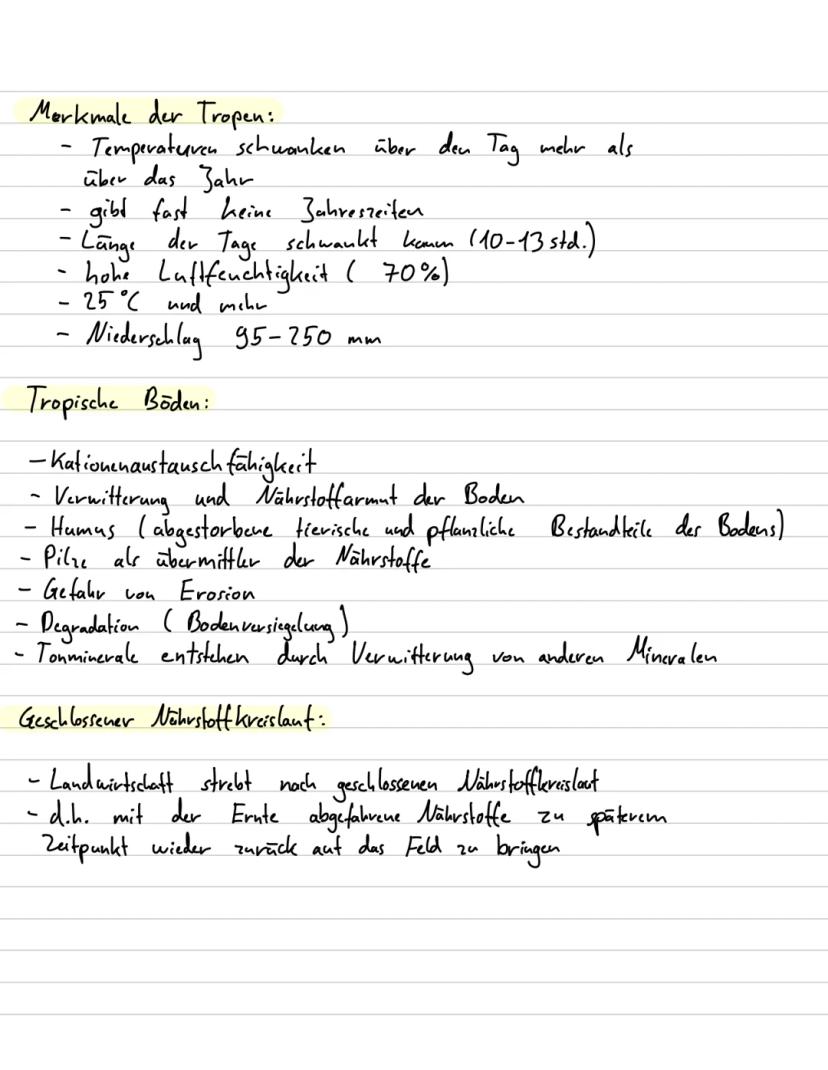 Merkmale der Tropen:
- Temperaturen schwanken über den Tag mehr als
über das Jahr
- gibt fast keine Jahreszeiten
- Länge der Tage schwankt kaum (10-13 std.)
- hohe Luftfeuchtigkeit ( 70%)
- 25 °C und mehr
- Niederschlag 95-250 mm
Tropische Böden:
- Kationenaustauschfähigkeit
- Verwitterung und Nährstoffarmut der Boden
- Humus (abgestorbene tierische und pflanzliche Bestandteile des Bodens)
- Pilze als übermittler der Nährstoffe
- Gefahr von Erosion
- Degradation (Bodenversiegelung)
- Tonminerale entstehen durch Verwitterung von anderen Mineralen
Geschlossener Nährstoffkreislauf:
- Landwirtschaft strebt nach geschlossenen Nährstoffkreislauf
- d.h. mit der Ernte abgefahrene Nährstoffe zu späterem
Zeitpunkt wieder zurück auf das Feld zu bringen